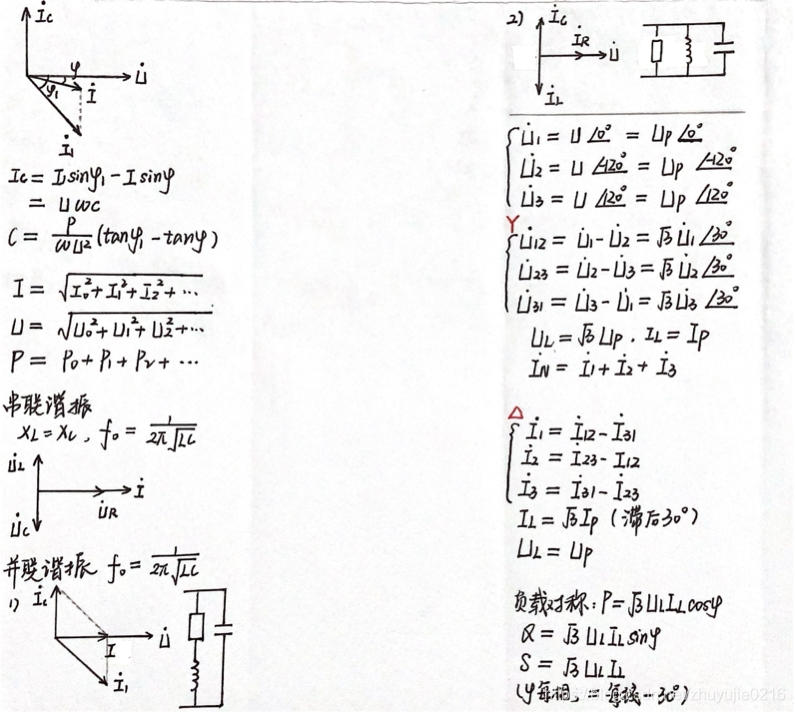 İc
U̇
φ
φ₁
İ
İ₁
Ic = I₁sinφ₁ - Isinφ
= UωC
C = P/(ωU²) (tanφ₁ - tanφ)
I = √(I₀²+I₁²+I₂²+⋯)
U = √(U₀²+U₁²+U₂²+⋯)
P = P₀+P₁+P₂+⋯
串联谐振
XL = Xc, f₀ = 1/(2π√(LC))
U̇L
İ
U̇R
U̇c
并联谐振 f₀ = 1/(2π√(LC))
1) İc
U̇
I
İ₁
2) İc
İR
U̇
İL
U̇₁ = U∠0° = Up∠0°
U̇₂ = U∠-120° = Up∠-120°
U̇₃ = U∠120° = Up∠120°
Y
U̇₁₂ = U̇₁-U̇₂ = √3 U̇₁∠30°
U̇₂₃ = U̇₂-U̇₃ = √3 U̇₂∠30°
U̇₃₁ = U̇₃-U̇₁ = √3 U̇₃∠30°
UL = √3 Up, IL = Ip
İN = İ₁+İ₂+İ₃
Δ
İ₁ = İ₁₂-İ₃₁
İ₂ = İ₂₃-I₁₂
İ₃ = İ₃₁-İ₂₃
IL = √3 Ip (滞后30°)
UL = Up
负载对称: P = √3 UL IL cosφ
Q = √3 UL IL sinφ
S = √3 UL IL
30°)
zhuyujie0216